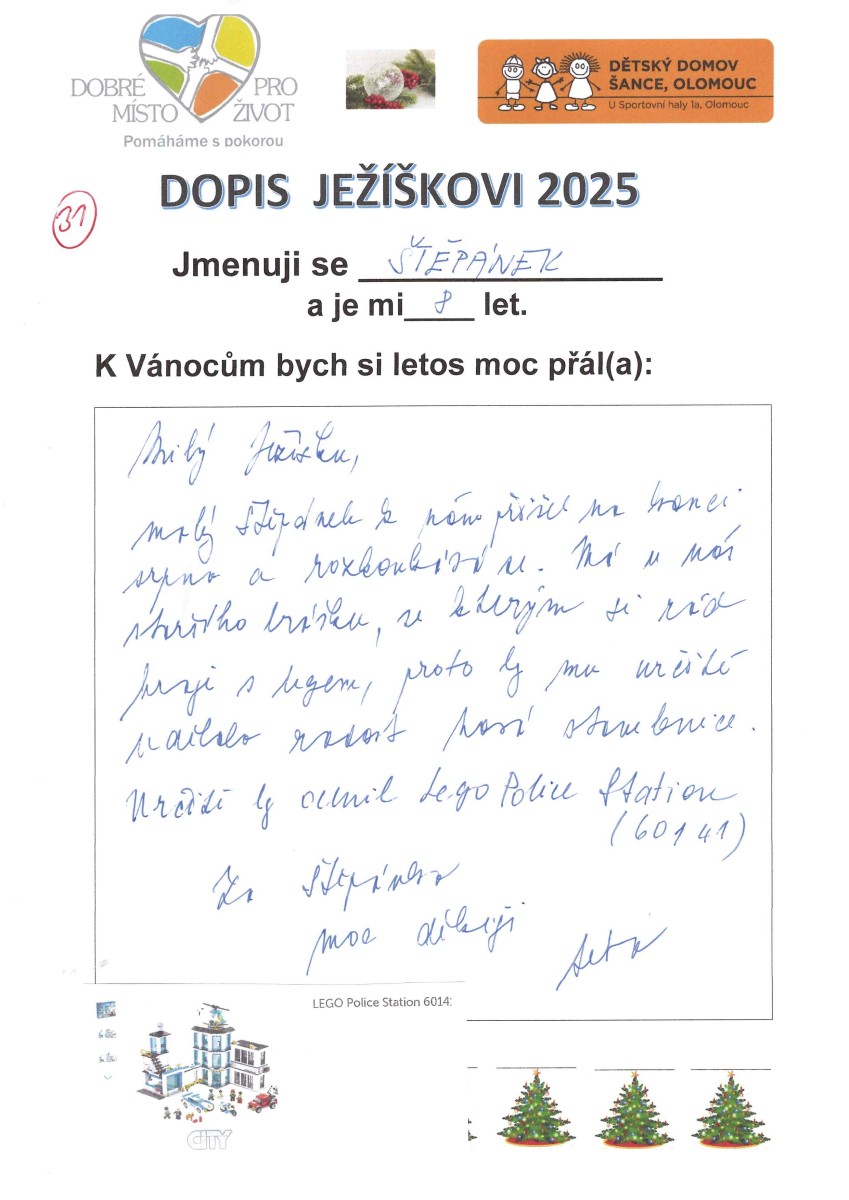 DOBRÉ PRO
MÍSTO ŽIVOT
Pomáháme s pokorou
DĚTSKÝ DOMOV
ŠANCE, OLOMOUC
U Sportovní haly 1a, Olomouc
DOPIS JEŽÍŠKOVI 2025
31
Jmenuji se ŠTĚPÁNEK
a je mi 8 let.
K Vánocům bych si letos moc přál(a):
Milý Ježíšku,
malý Štěpánek k nám přišel na konci
srpna a rozkoukává se. Má u nás
staršího brášku, se kterým si rád
hraje s legem, proto by mu určitě
udělala radost nová stavebnice.
Určitě by ocenil Lego Police Station
(60141)
Za Štěpánka
moc děkuji
teta
LEGO Police Station 6014
CITY